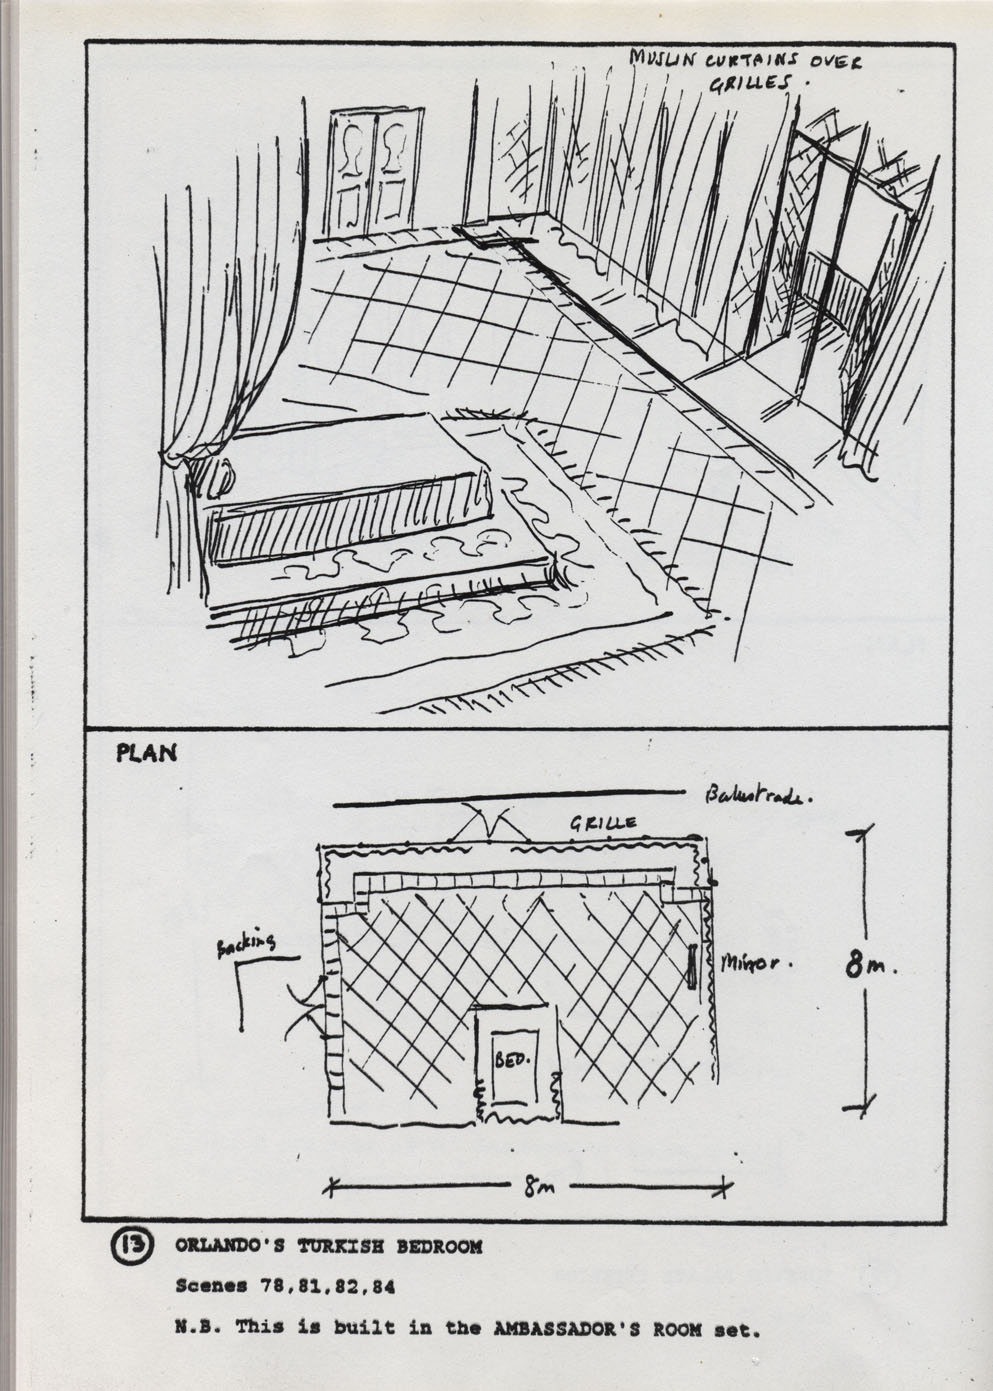 MUSLIN CURTAINS OVER
GRILLES.
PLAN
Balustrade.
GRILLE
Backing
Mirror.
8m.
BED.
8m
13 ORLANDO'S TURKISH BEDROOM
Scenes 78,81,82,84
N.B. This is built in the AMBASSADOR'S ROOM set.